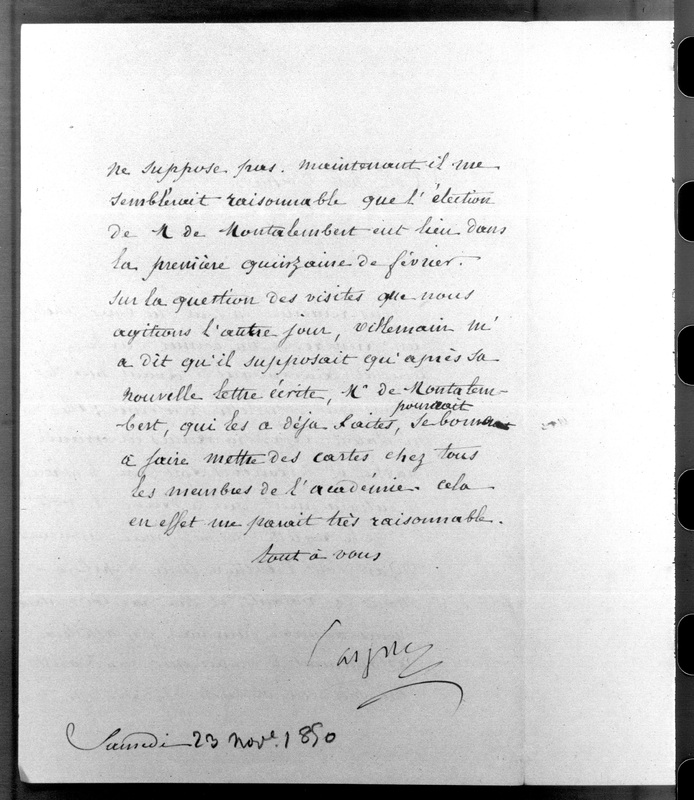 ne suppose pas. maintenant il me
semblerait raisonnable que l'élection
de M de Montalembert eut lieu dans
la première quinzaine de février.
Sur la question des visites que nous
agitions l'autre jour, villemain m'
a dit qu'il supposait qu'après sa
nouvelle lettre écrite, Mr de Montalem-
pourrait
bert, qui les a déja faites, se borner
a faire mettre des cartes chez tous
les membres de l'académie. cela
en effet me parait très raisonnable.
tout à vous
Samedi 23 Nov.e 1850